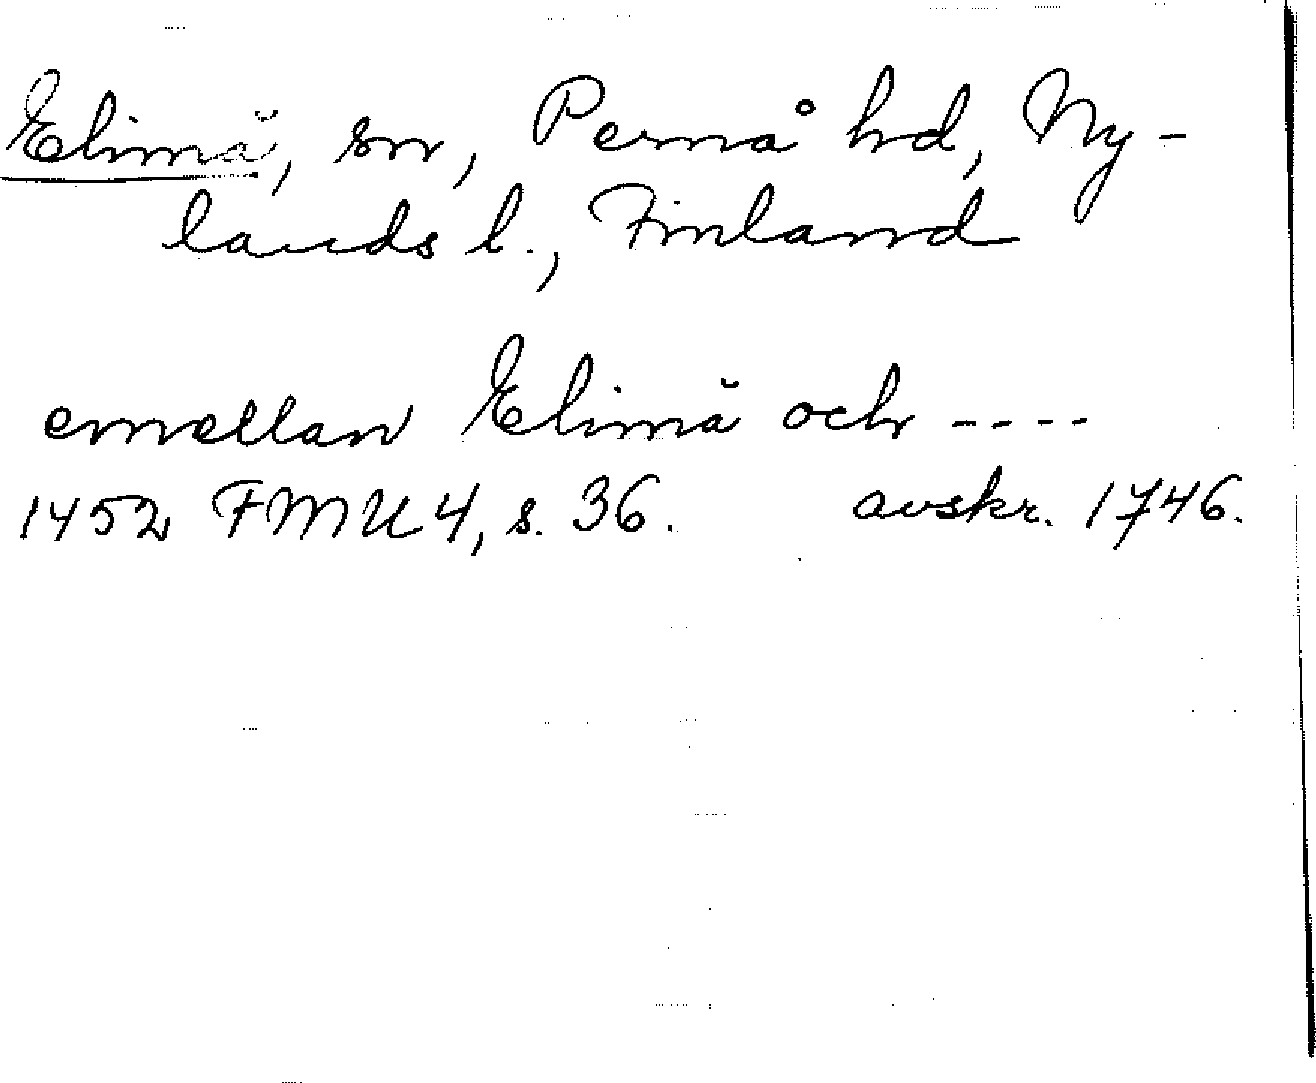 Elimä, sn, Pernå hd, Ny-
lands l., Finland
emellan Elimä och ----
1452 FMU 4, s. 36. avskr. 1746.